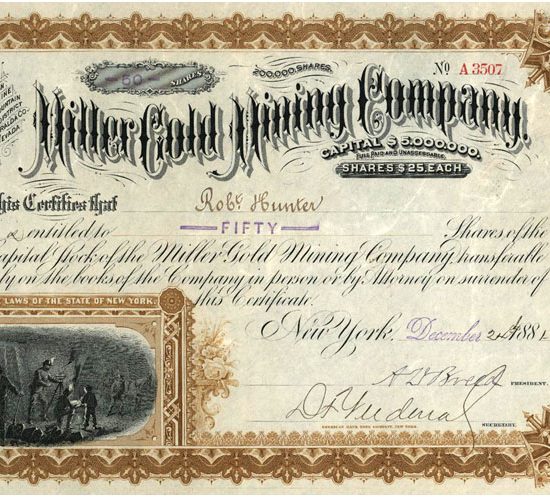 50 SHARES
200,000 SHARES.
No A 3507
Miller Gold Mining Company.
CAPITAL $5,000,000.
FULL PAID AND UNASSESSABLE.
SHARES $25, EACH
his Certifies that Robt. Hunter
entitled to FIFTY Shares of the
apital Stock of the Miller Gold Mining Company transferable
ly on the books of the Company in person or by Attorney on surrender of
this Certificate.
LAWS OF THE STATE OF NEW YORK.
New York. December 188
PRESIDENT.
SECRETARY.
AMERICAN BANK NOTE COMPANY, NEW YORK.